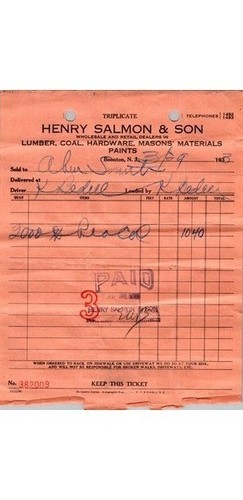 TRIPLICATE
TELEPHONES
HENRY SALMON & SON
WHOLESALE AND RETAIL DEALERS IN
LUMBER, COAL, HARDWARE, MASONS' MATERIALS
PAINTS
Boonton, N. J. 2/9 193
Sold to Abur Smith
Delivered at
Driver K Leduc Loaded by K Leduc
ITEMS FEET RATE AMOUNT TOTAL
2000 # Pea Coal 1040
PAID
3
HENRY SALMON & SON
WHEN ORDERED TO BACK ON SIDEWALK OR USE DRIVEWAY WE DO SO AT YOUR RISK,
AND WILL NOT BE RESPONSIBLE FOR BROKEN WALKS, DRIVEWAYS, ETC.
No. 382009 KEEP THIS TICKET